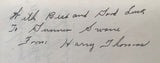 With Best and Good Luck
To Sumner Swane
From: Harry Thomas